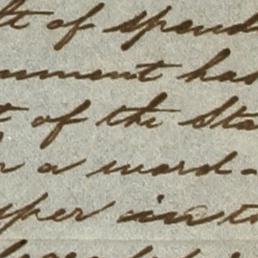 lt of spend
nment has
t of the Sta
r a word-
per into